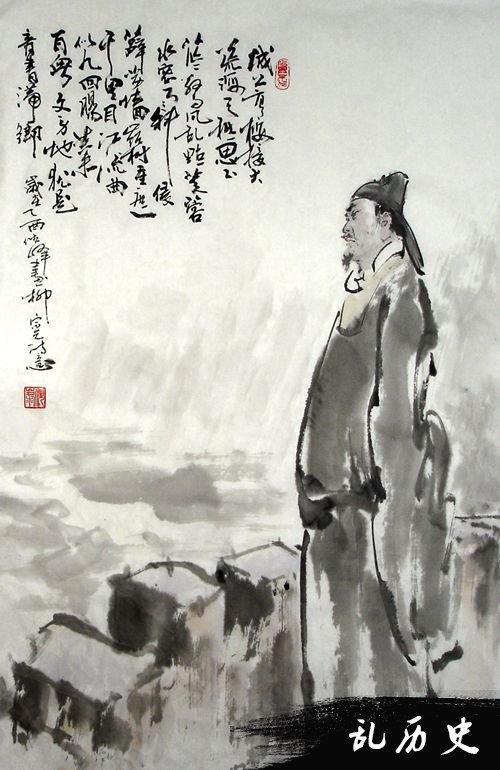 城上高楼接大
荒海天愁思正
茫茫惊风乱飐芙蓉
水密雨斜侵
薜荔墙岭树重遮
千里目江流曲
似九回肠共来
百粤文身地犹是
音书滞乡
岁在乙酉峰画柳宗元诗意
乱历史